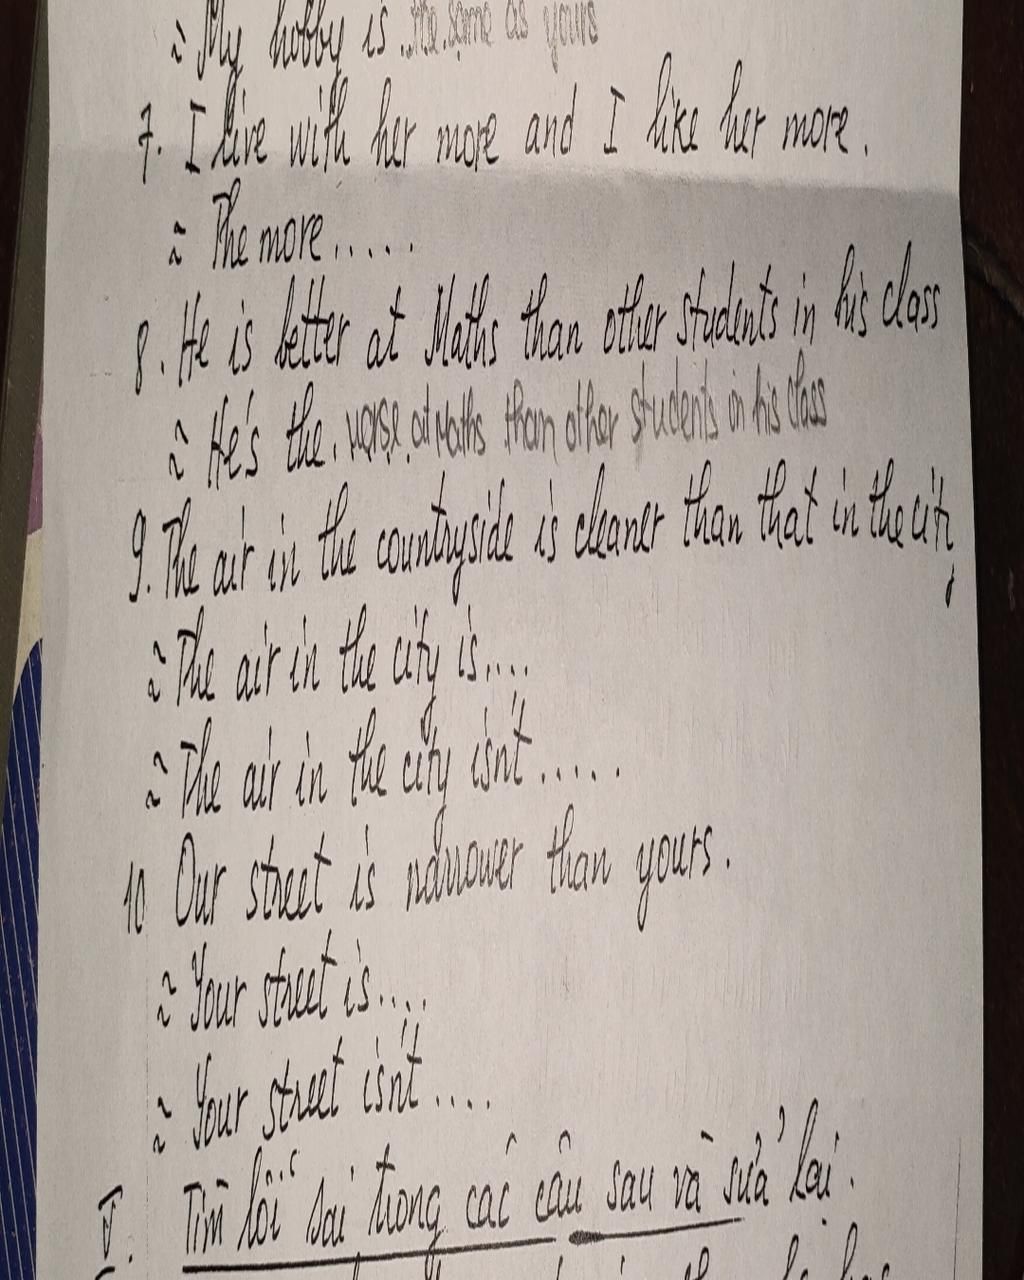 ≈ My hobby is ..the same as yours
7. I live with her more and I like her more.
≈ The more.....
8. He is better at Maths than other students in his class
≈ He's the. worse at Maths than other students in his class
9. The air in the countryside is cleaner than that in the city
≈ The air in the city is....
≈ The air in the city isn't.....
10 Our street is narrower than yours.
≈ Your street is....
≈ Your street isn't....
V. Tìm lỗi sai trong các câu sau và sửa lại.